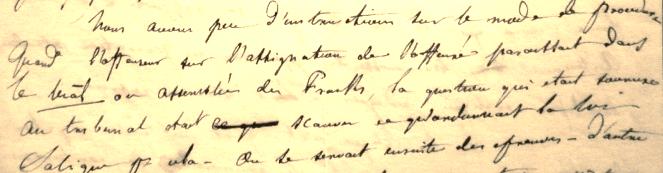 Nous avons peu d'instructions sur le mode de procedure
Quand l'offenseur sur l'assignation de l'offensé paraissait dans
le mâl ou assemblées des Franks, la question qui était soumise
au tribunal était ce que scavoir ce qu'ordonnait la loi
Salique cela - On se servait ensuite des épreuves - d'autre